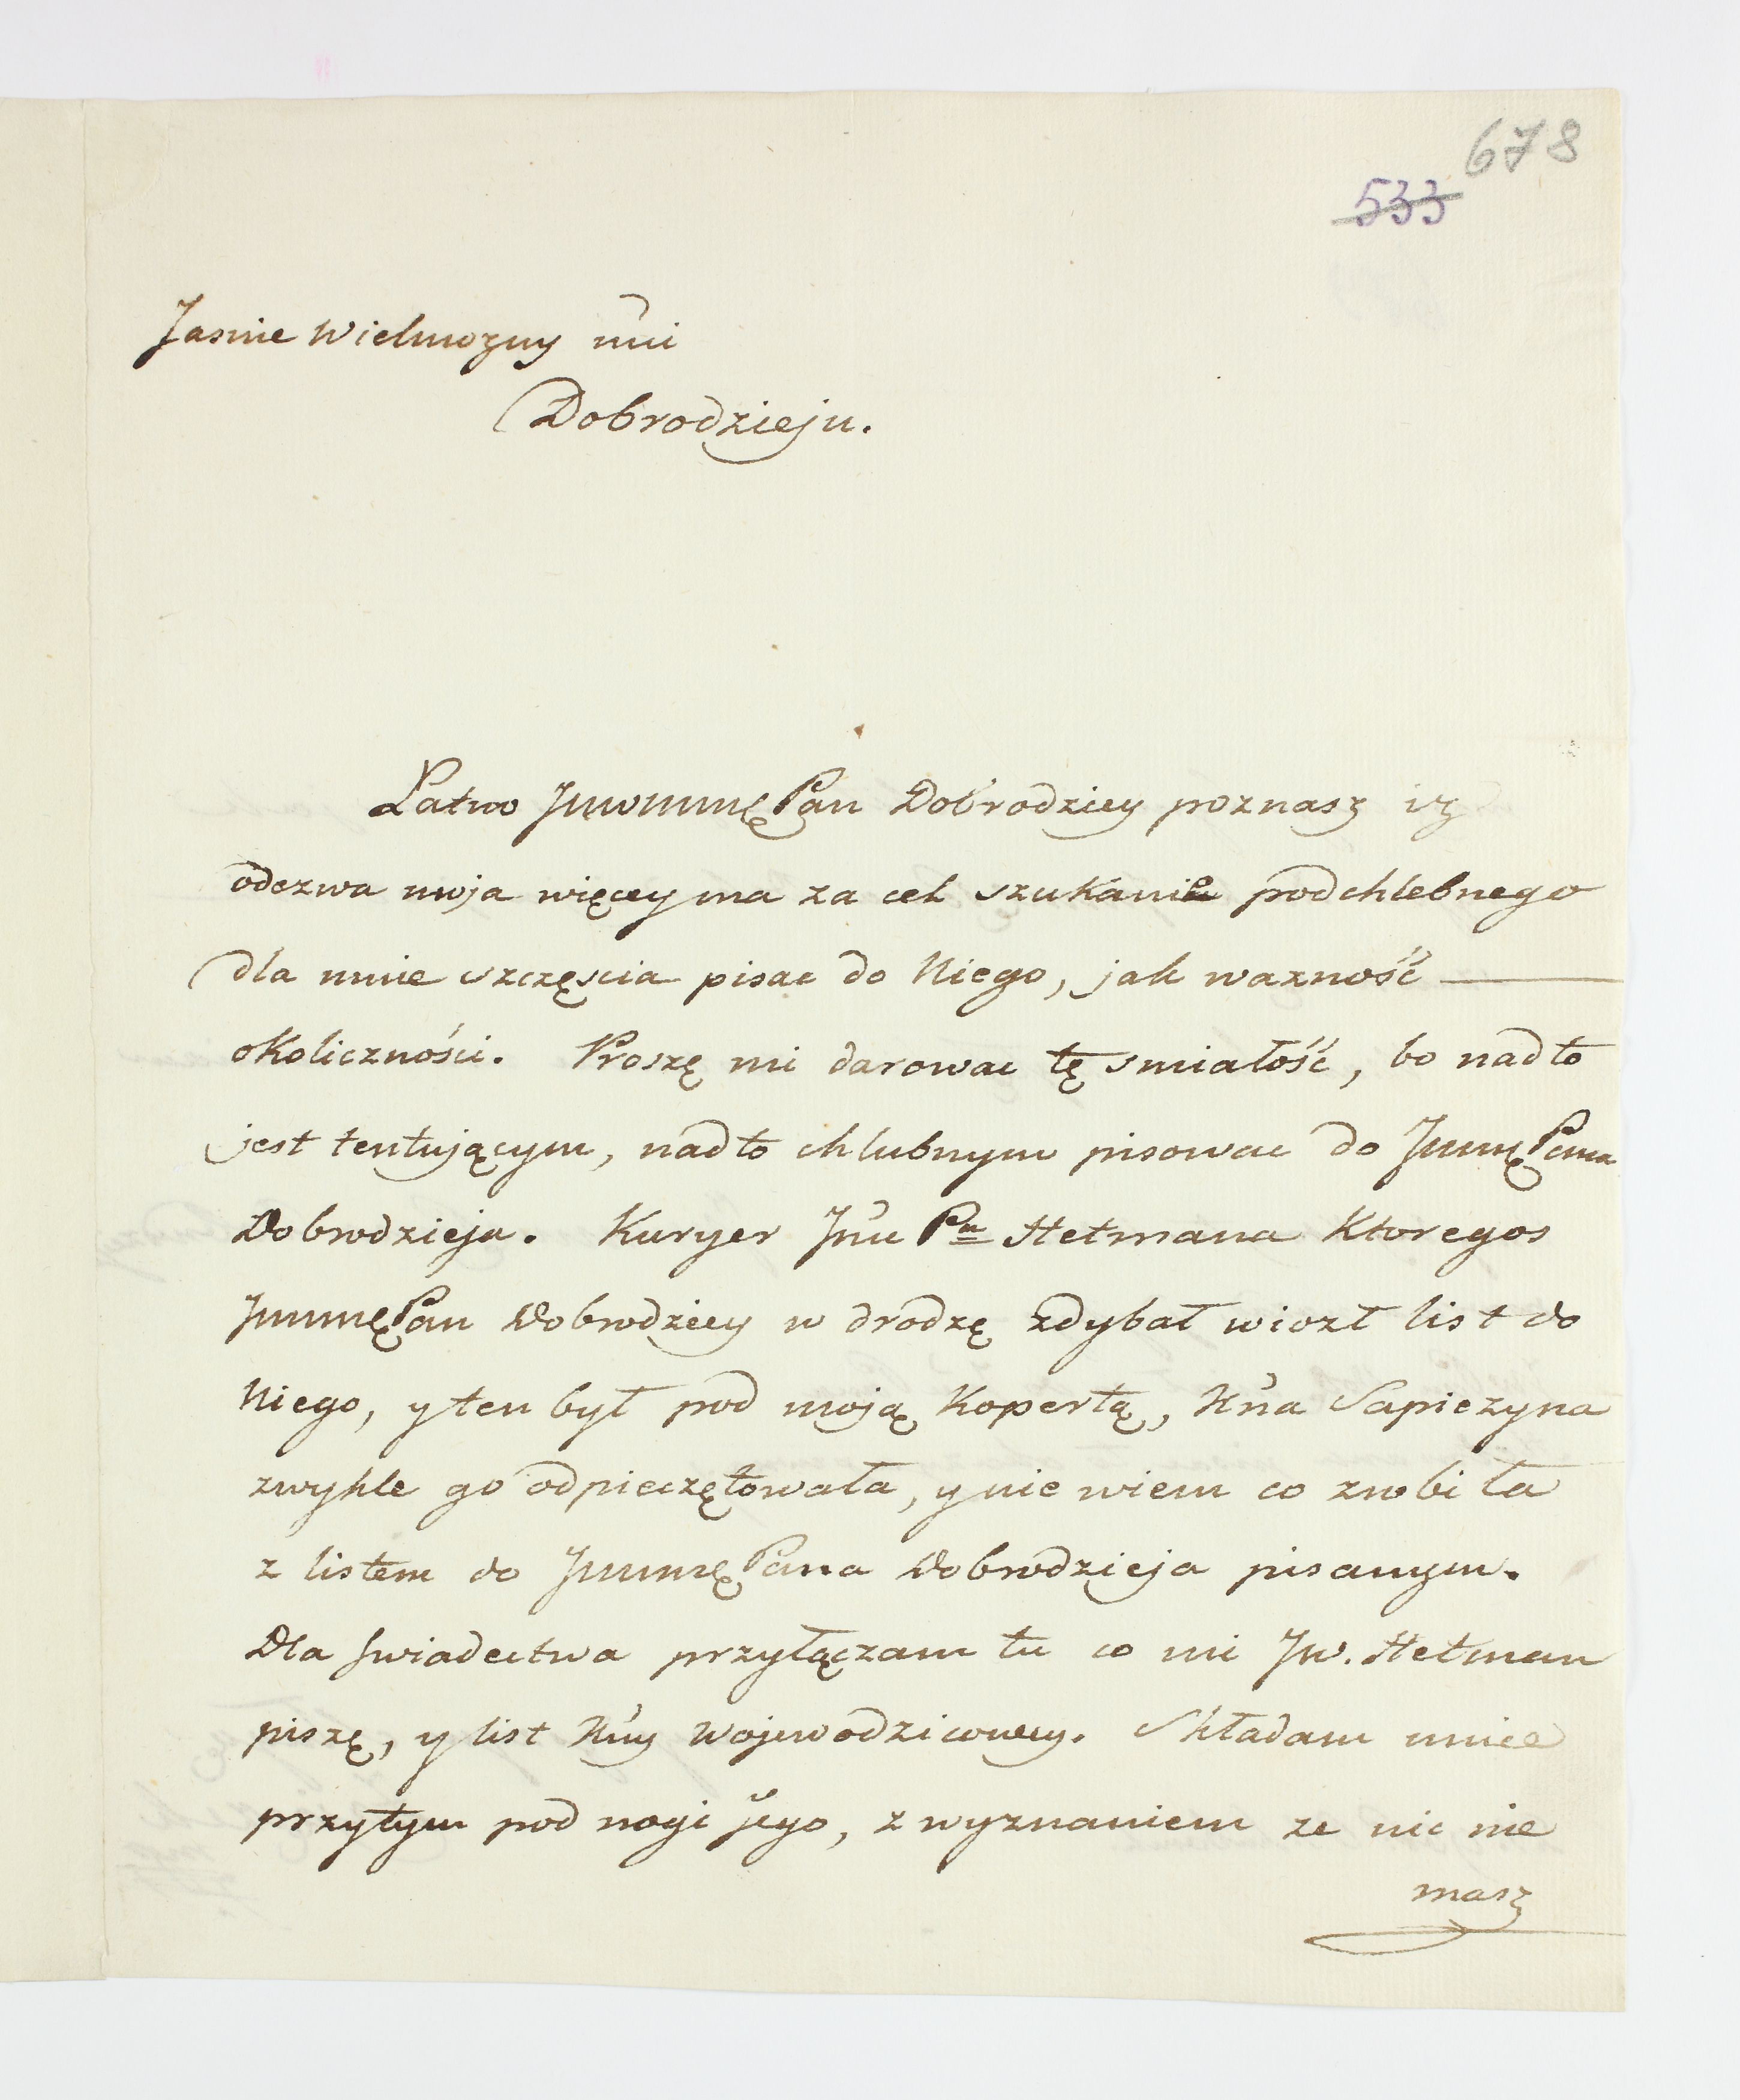 678
533
Jasnie Wielmozny mći
Dobrodzieju.
Łatwo Jmwmmę Pan Dobrodziey poznasz iz
odezwa moja więcey ma za cel szukanie podchlebnego
dla mnie szczęscia pisac do Niego, jak wazność
okoliczności. Proszę mi darowac tę smiałość, bo nadto
jest tentującym, nadto chlubnym pisowac do Jmmę Pana
Dobrodzieja. Kuryer Jmu Pa Hetmana Ktoregos
Jmmę Pan Dobrodziey w drodzę zdybał wiozł list do
Niego, y ten był pod moją Kopertą, Xna Sapiezyna
zwykle go odpieczętowała, y nie wiem co zrobiła
z listem do Jmmę Pana Dobrodzieja pisanym.
Dla swiadectwa przyłączam tu co mi Jw. Hetman
piszę, y list Xny Wojewodzicowey. Składam mnie
przytym pod nogi jego, z wyznaniem ze nic nie
masz